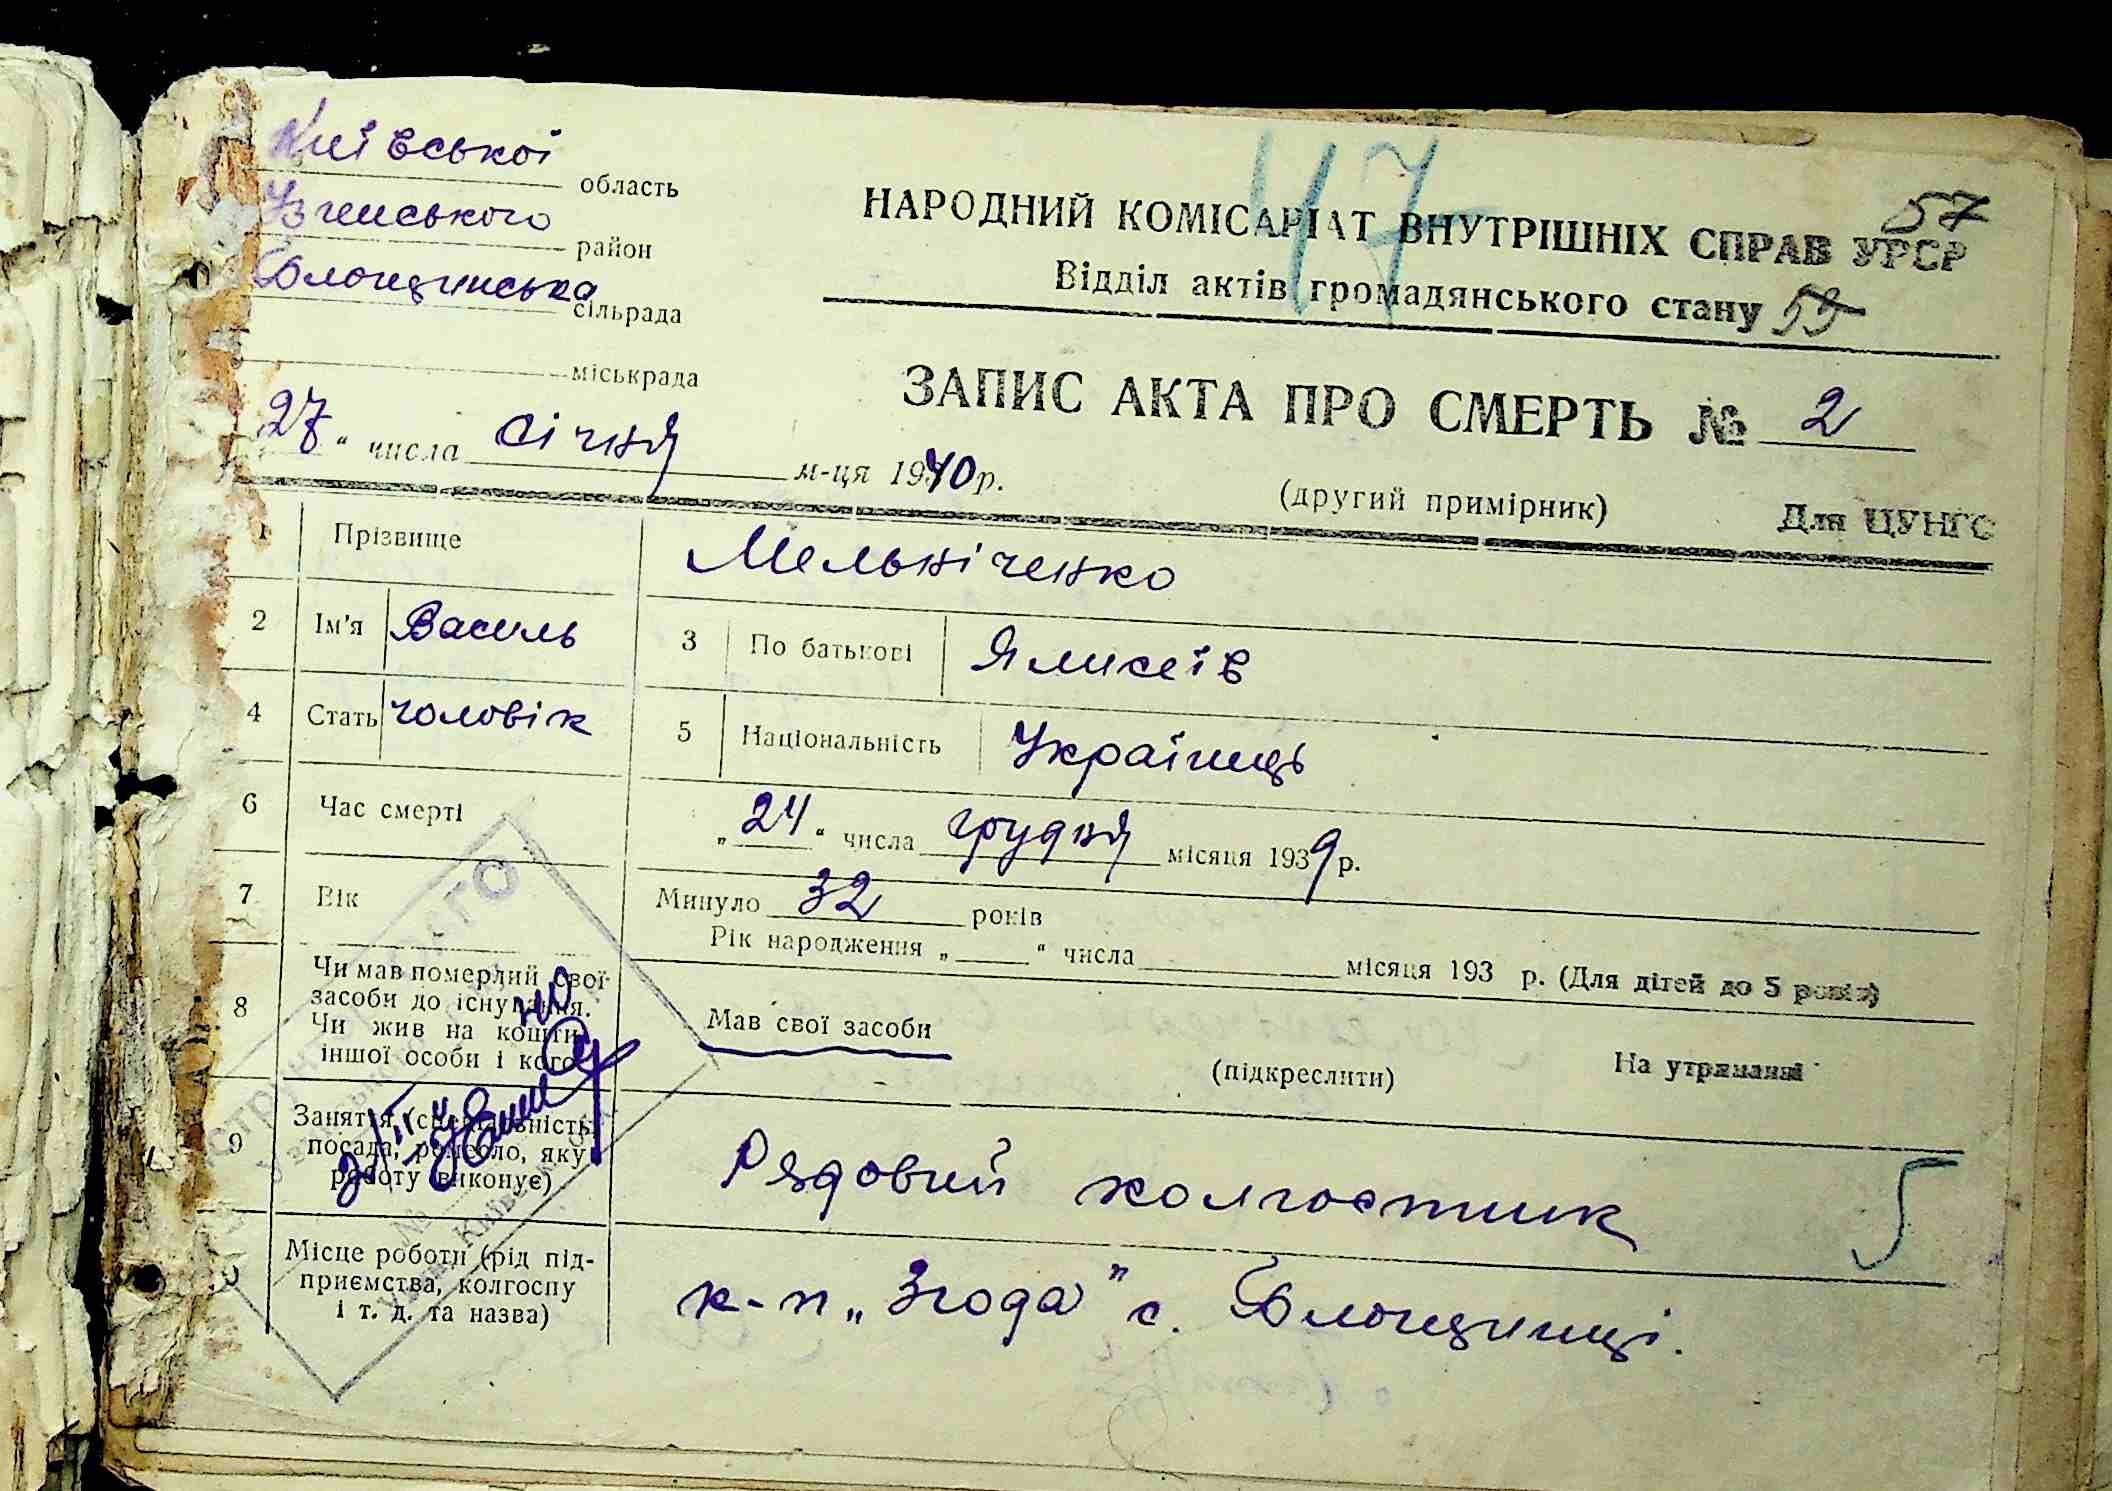 Київської область
Узинського район
Блощинська сільрада
міськрада
47
57
НАРОДНИЙ КОМІСАРІАТ ВНУТРІШНІХ СПРАВ УРСР
Відділ актів громадянського стану 59
ЗАПИС АКТА ПРО СМЕРТЬ № 2
27 " числа січня м-ця 1940 р.
(другий примірник) Для ЦУНГО
1 Прізвище Мельніченко
2 Ім'я Василь 3 По батькові Яликсеїв
4 Стать чоловік 5 Національність Українць
6 Час смерті „ 24 " числа грудня місяця 1939 р.
7 Вік Минуло 32 років
Рік народження „ " числа місяця 193 р. (Для дітей до 5 років)
8 Чи мав померлий свої засоби до існування.
Чи жив на кошти іншої особи і кого
Мав свої засоби (підкреслити) На утриманні
9 Заняття (спеціальність, посада, ремесло, яку роботу виконує)
Рядовий колгостник
5
Місце роботи (рід підприємства, колгоспу і т. д. та назва)
к-п „Згода" с. Блощинці.